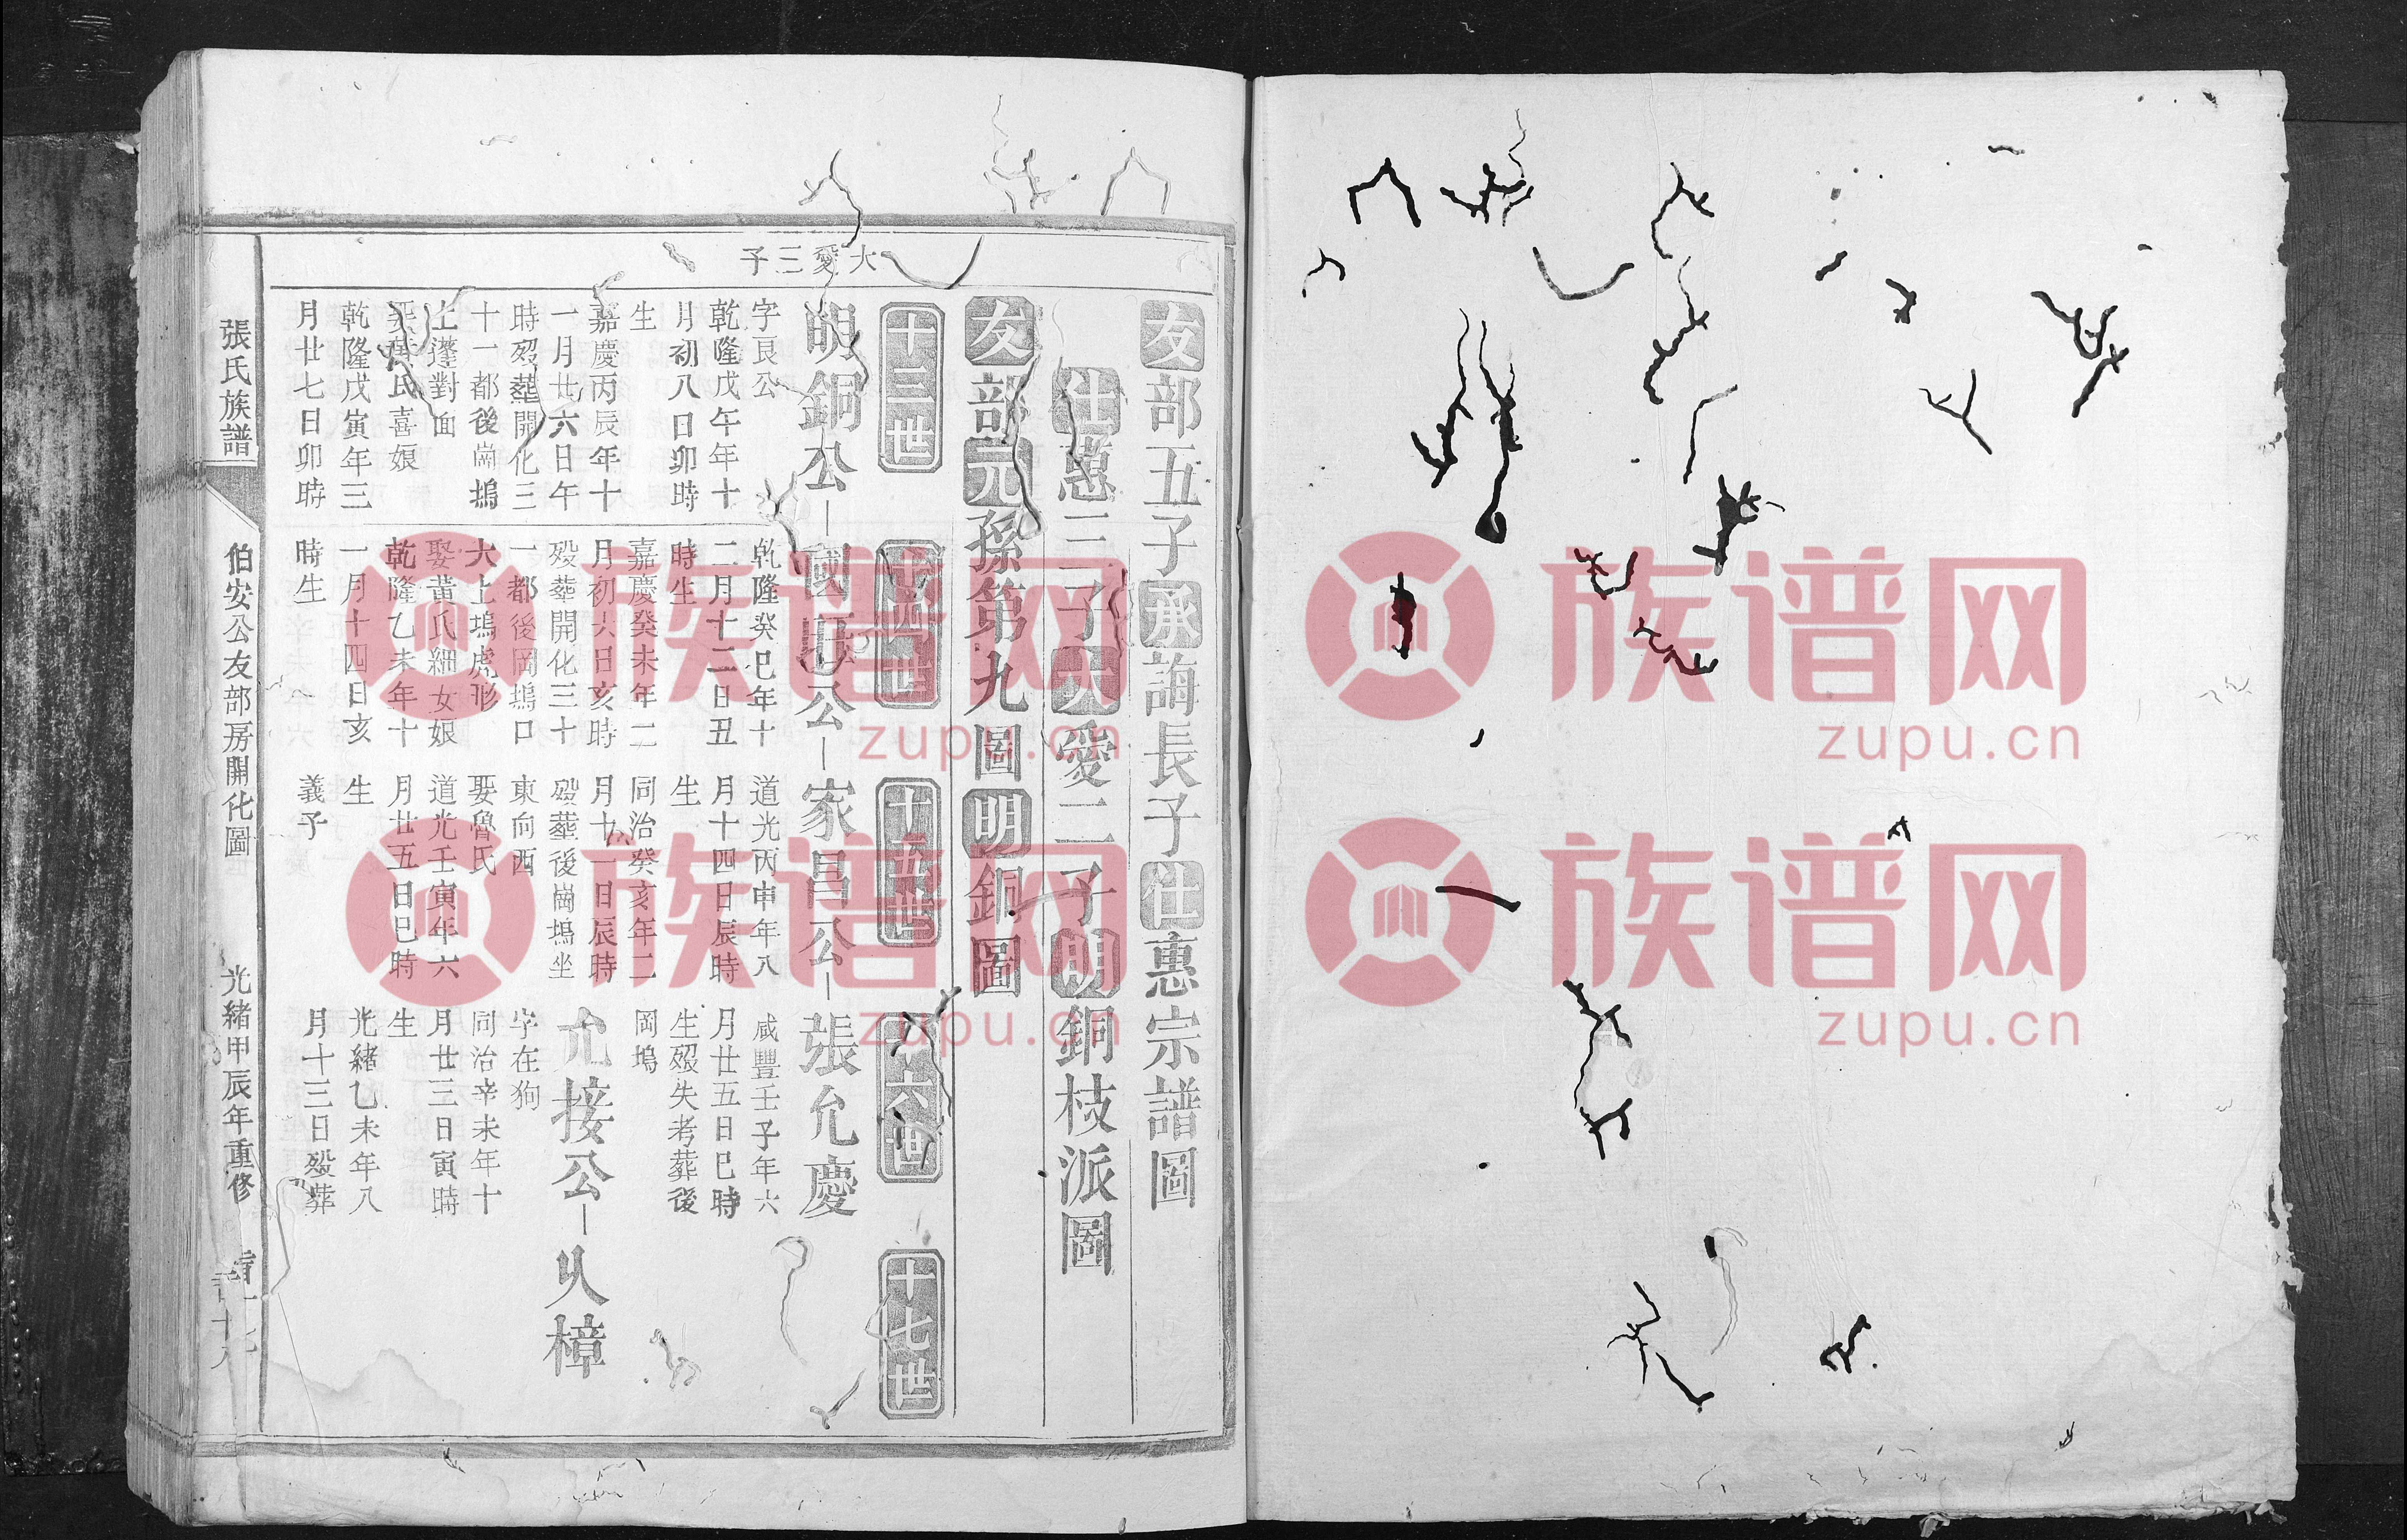 大愛三子
友部五子承誨長子仕惠宗譜圖
仕惠三子大愛二子明銅枝派圖
友部元孫第九圖明銅圖
十三世
十四世
十五世
十六世
十七世
明銅公
字艮公
乾隆戊午年十
月初八日卯時
生
嘉慶丙辰年十
一月廿六日午
時歿葬開化三
十一都後崗塢
上蓬對面
氏喜娘
乾隆戊寅年三
月廿七日卯時
國公
乾隆癸巳年十
二月十二日丑
時生
嘉慶癸未年二
月初六日亥時
歿葬開化三十
一都後岡塢口
大上塢虎形
娶黃氏細女娘
乾隆乙未年十
一月十四日亥
時生
家昌公
道光丙申年八
月十四日辰時
生
同治癸亥年二
月十一日辰時
歿葬後崗塢坐
東向西
娶魯氏
道光壬寅年六
月廿五日巳時
生
義子
張允慶
咸豐壬子年六
月廿五日巳時
生歿失考葬後
岡塢
允接公
字在狗
同治辛未年十
月廿三日寅時
生
光緒乙未年八
月十三日歿葬
樟
張氏族譜
伯安公友部房開化圖
光緒甲辰年重修
族谱网
zupu.cn
族谱网
zupu.cn
族谱网
zupu.cn
族谱网
zupu.cn